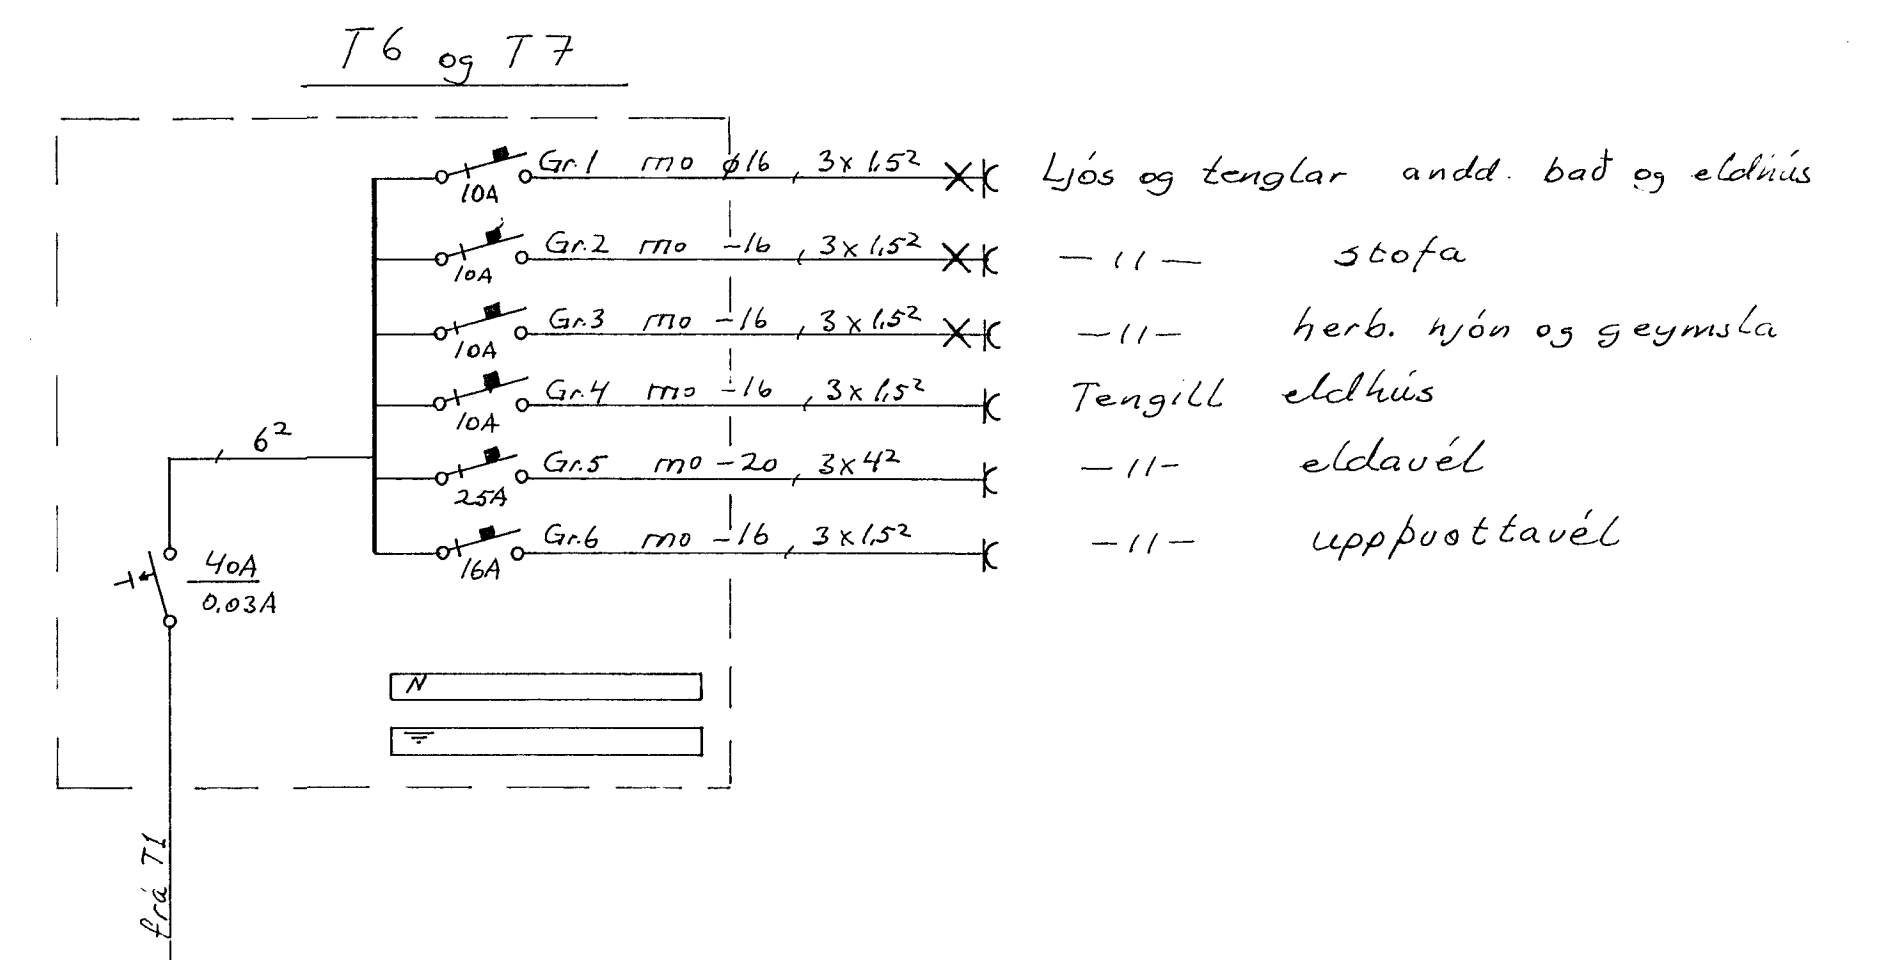 T6 og T7
Gr.1 mo ø16, 3x1,5² Ljós og tenglar andd. bað og eldhús
10A
Gr.2 mo -16, 3x1,5² -11- stofa
10A
Gr.3 mo -16, 3x1,5² -11- herb. hjón og geymsla
10A
Gr.4 mo -16, 3x1,5² Tengill eldhús
10A
6²
Gr.5 mo -20, 3x4² -11- eldavél
25A
Gr.6 mo -16, 3x1,5² -11- uppþvottavél
16A
40A
0,03A
N
frá T1